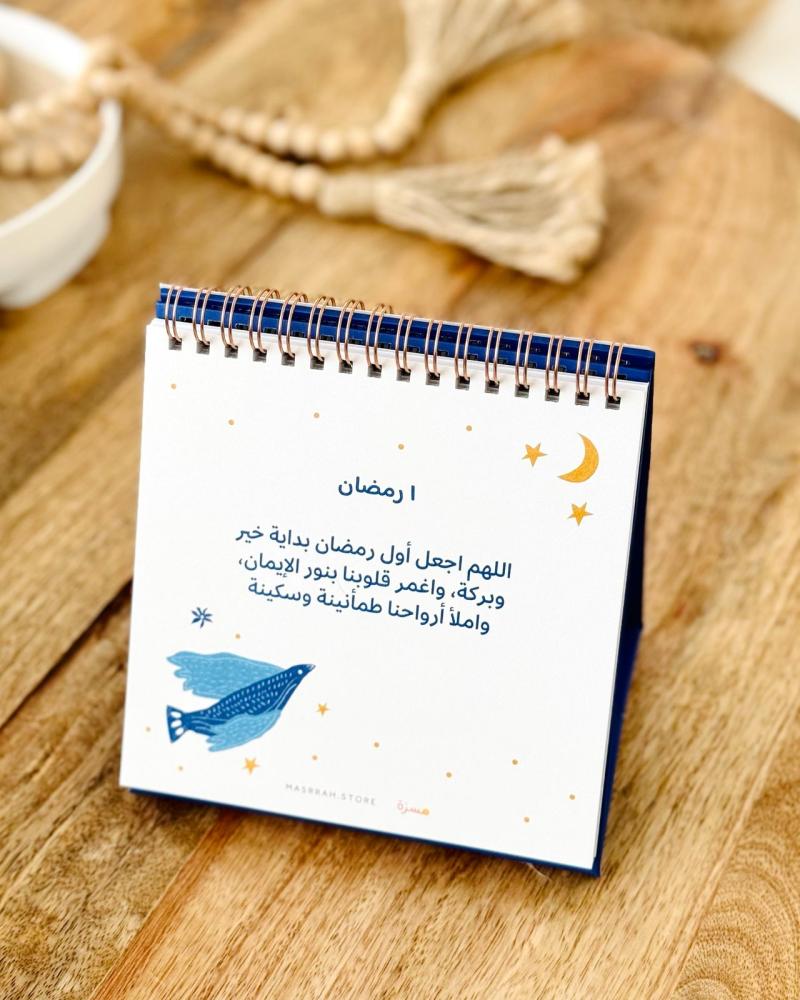 ١ رمضان
اللهم اجعل أول رمضان بداية خير
وبركة، واغمر قلوبنا بنور الإيمان،
واملأ أرواحنا طمأنينة وسكينة
MASRRAH.STORE
مسرة